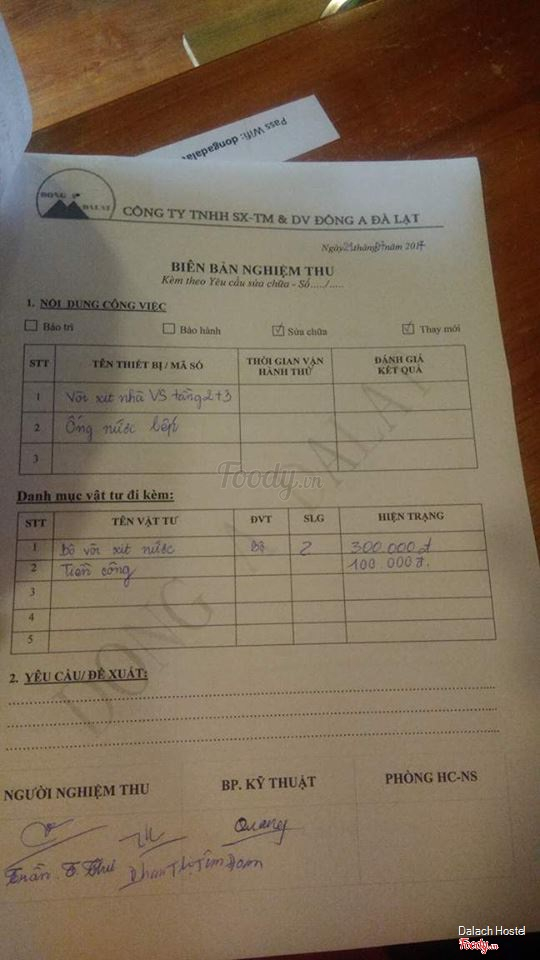 Pass Wifi: dongadalat
DONG A DALAT
CÔNG TY TNHH SX-TM & DV ĐÔNG A ĐÀ LẠT
Ngày 21 tháng 07 năm 2017
BIÊN BẢN NGHIỆM THU
Kèm theo Yêu cầu sửa chữa - Số...../.....
1. NỘI DUNG CÔNG VIỆC
Bảo trì Bảo hành Sửa chữa Thay mới
STT TÊN THIẾT BỊ / MÃ SỐ THỜI GIAN VẬN HÀNH THỬ ĐÁNH GIÁ KẾT QUẢ
1 Vòi xịt nhà VS tầng 2+3
2 Ống nước bếp
3
Foody.vn
Danh mục vật tư đi kèm:
STT TÊN VẬT TƯ ĐVT SLG HIỆN TRẠNG
1 Bộ vòi xịt nước Bộ 2 300.000đ
2 Tiền công 100.000đ.
3
4
5
DONG A DALAT
2. YÊU CẦU/ ĐỀ XUẤT:
NGƯỜI NGHIỆM THU BP. KỸ THUẬT PHÒNG HC-NS
Quang
Trần T. Thu Phan Thị Kim Đoan
Dalach Hostel
Foody.vn